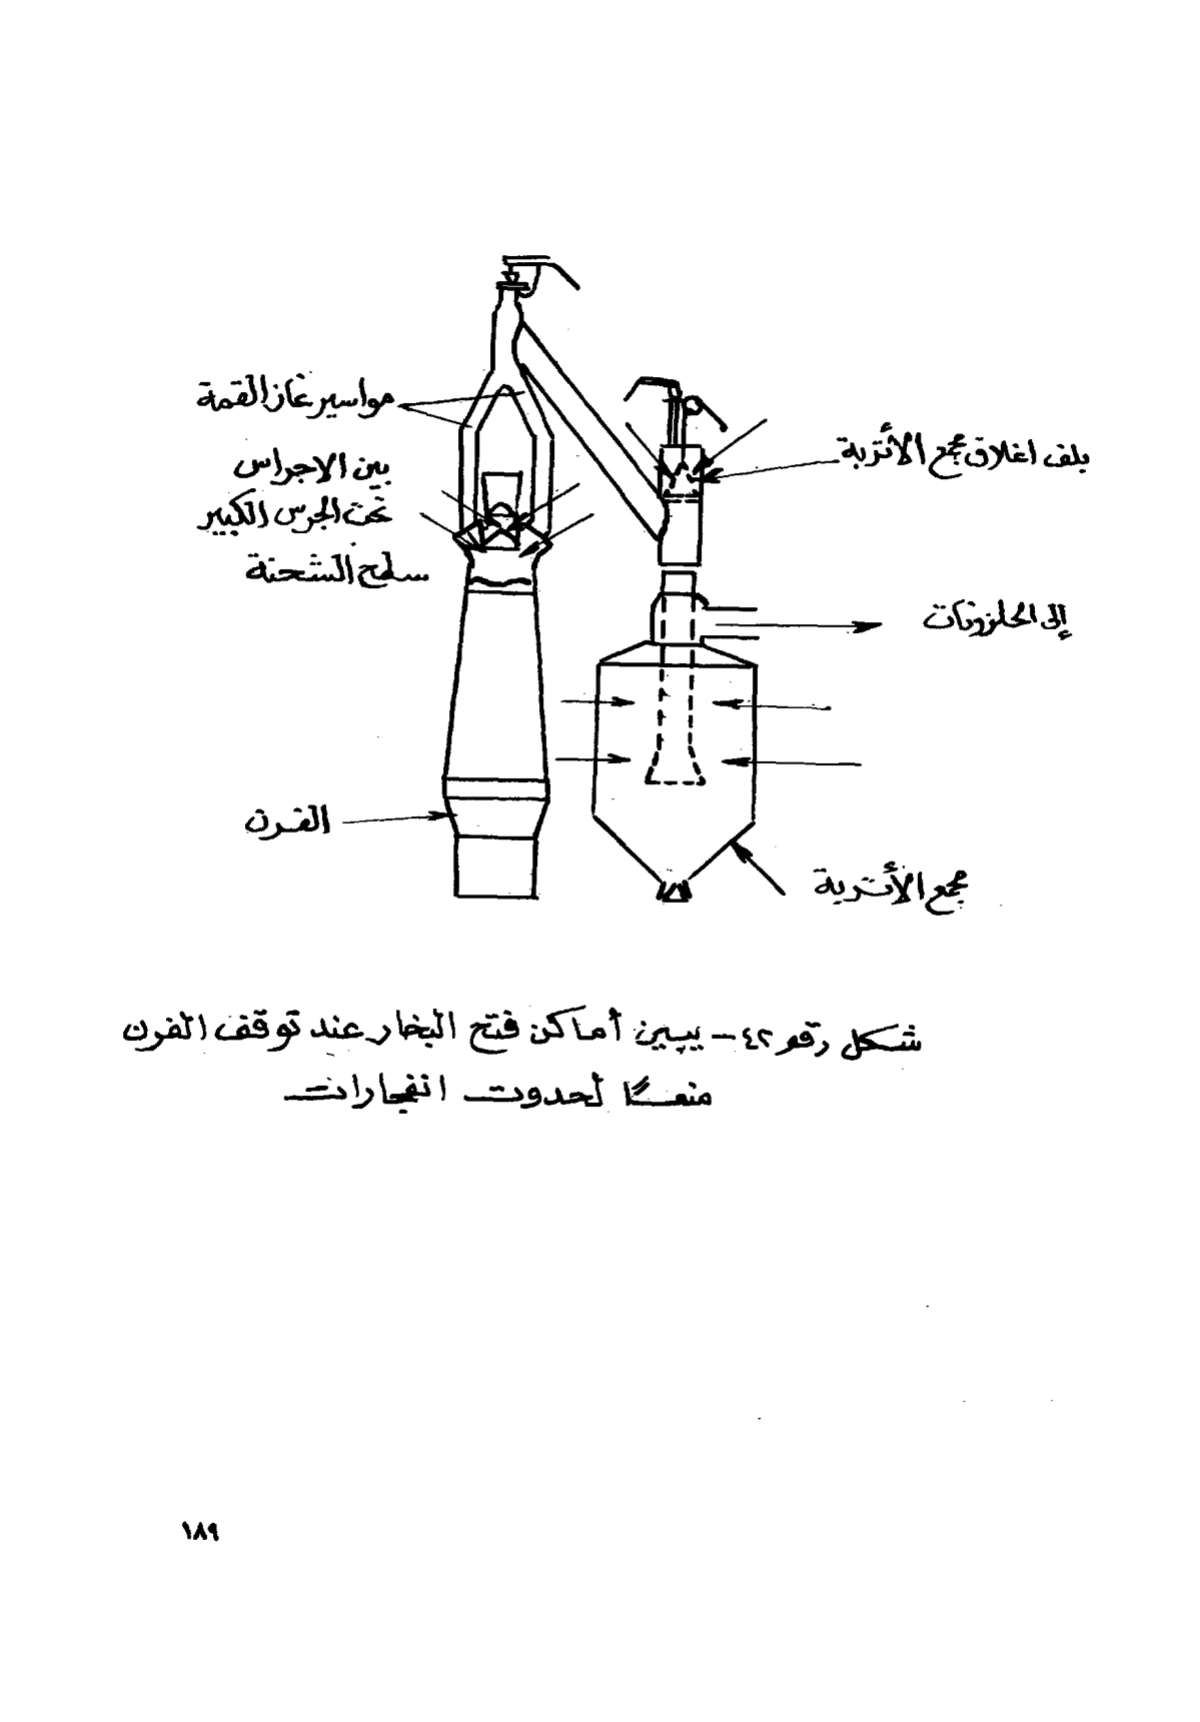 مواسير غاز القمة
بين الاجراس
تحت الجرس الكبير
سطح الشحنة
بلف اغلاق مجمع الأتربة
إلى الحلزونات
الفرن
مجمع الأتربة
شكل رقم ٤٢ - يبين أماكن فتح البخار عند توقف الفرن
منعًا لحدوت انفجارات
١٨٩